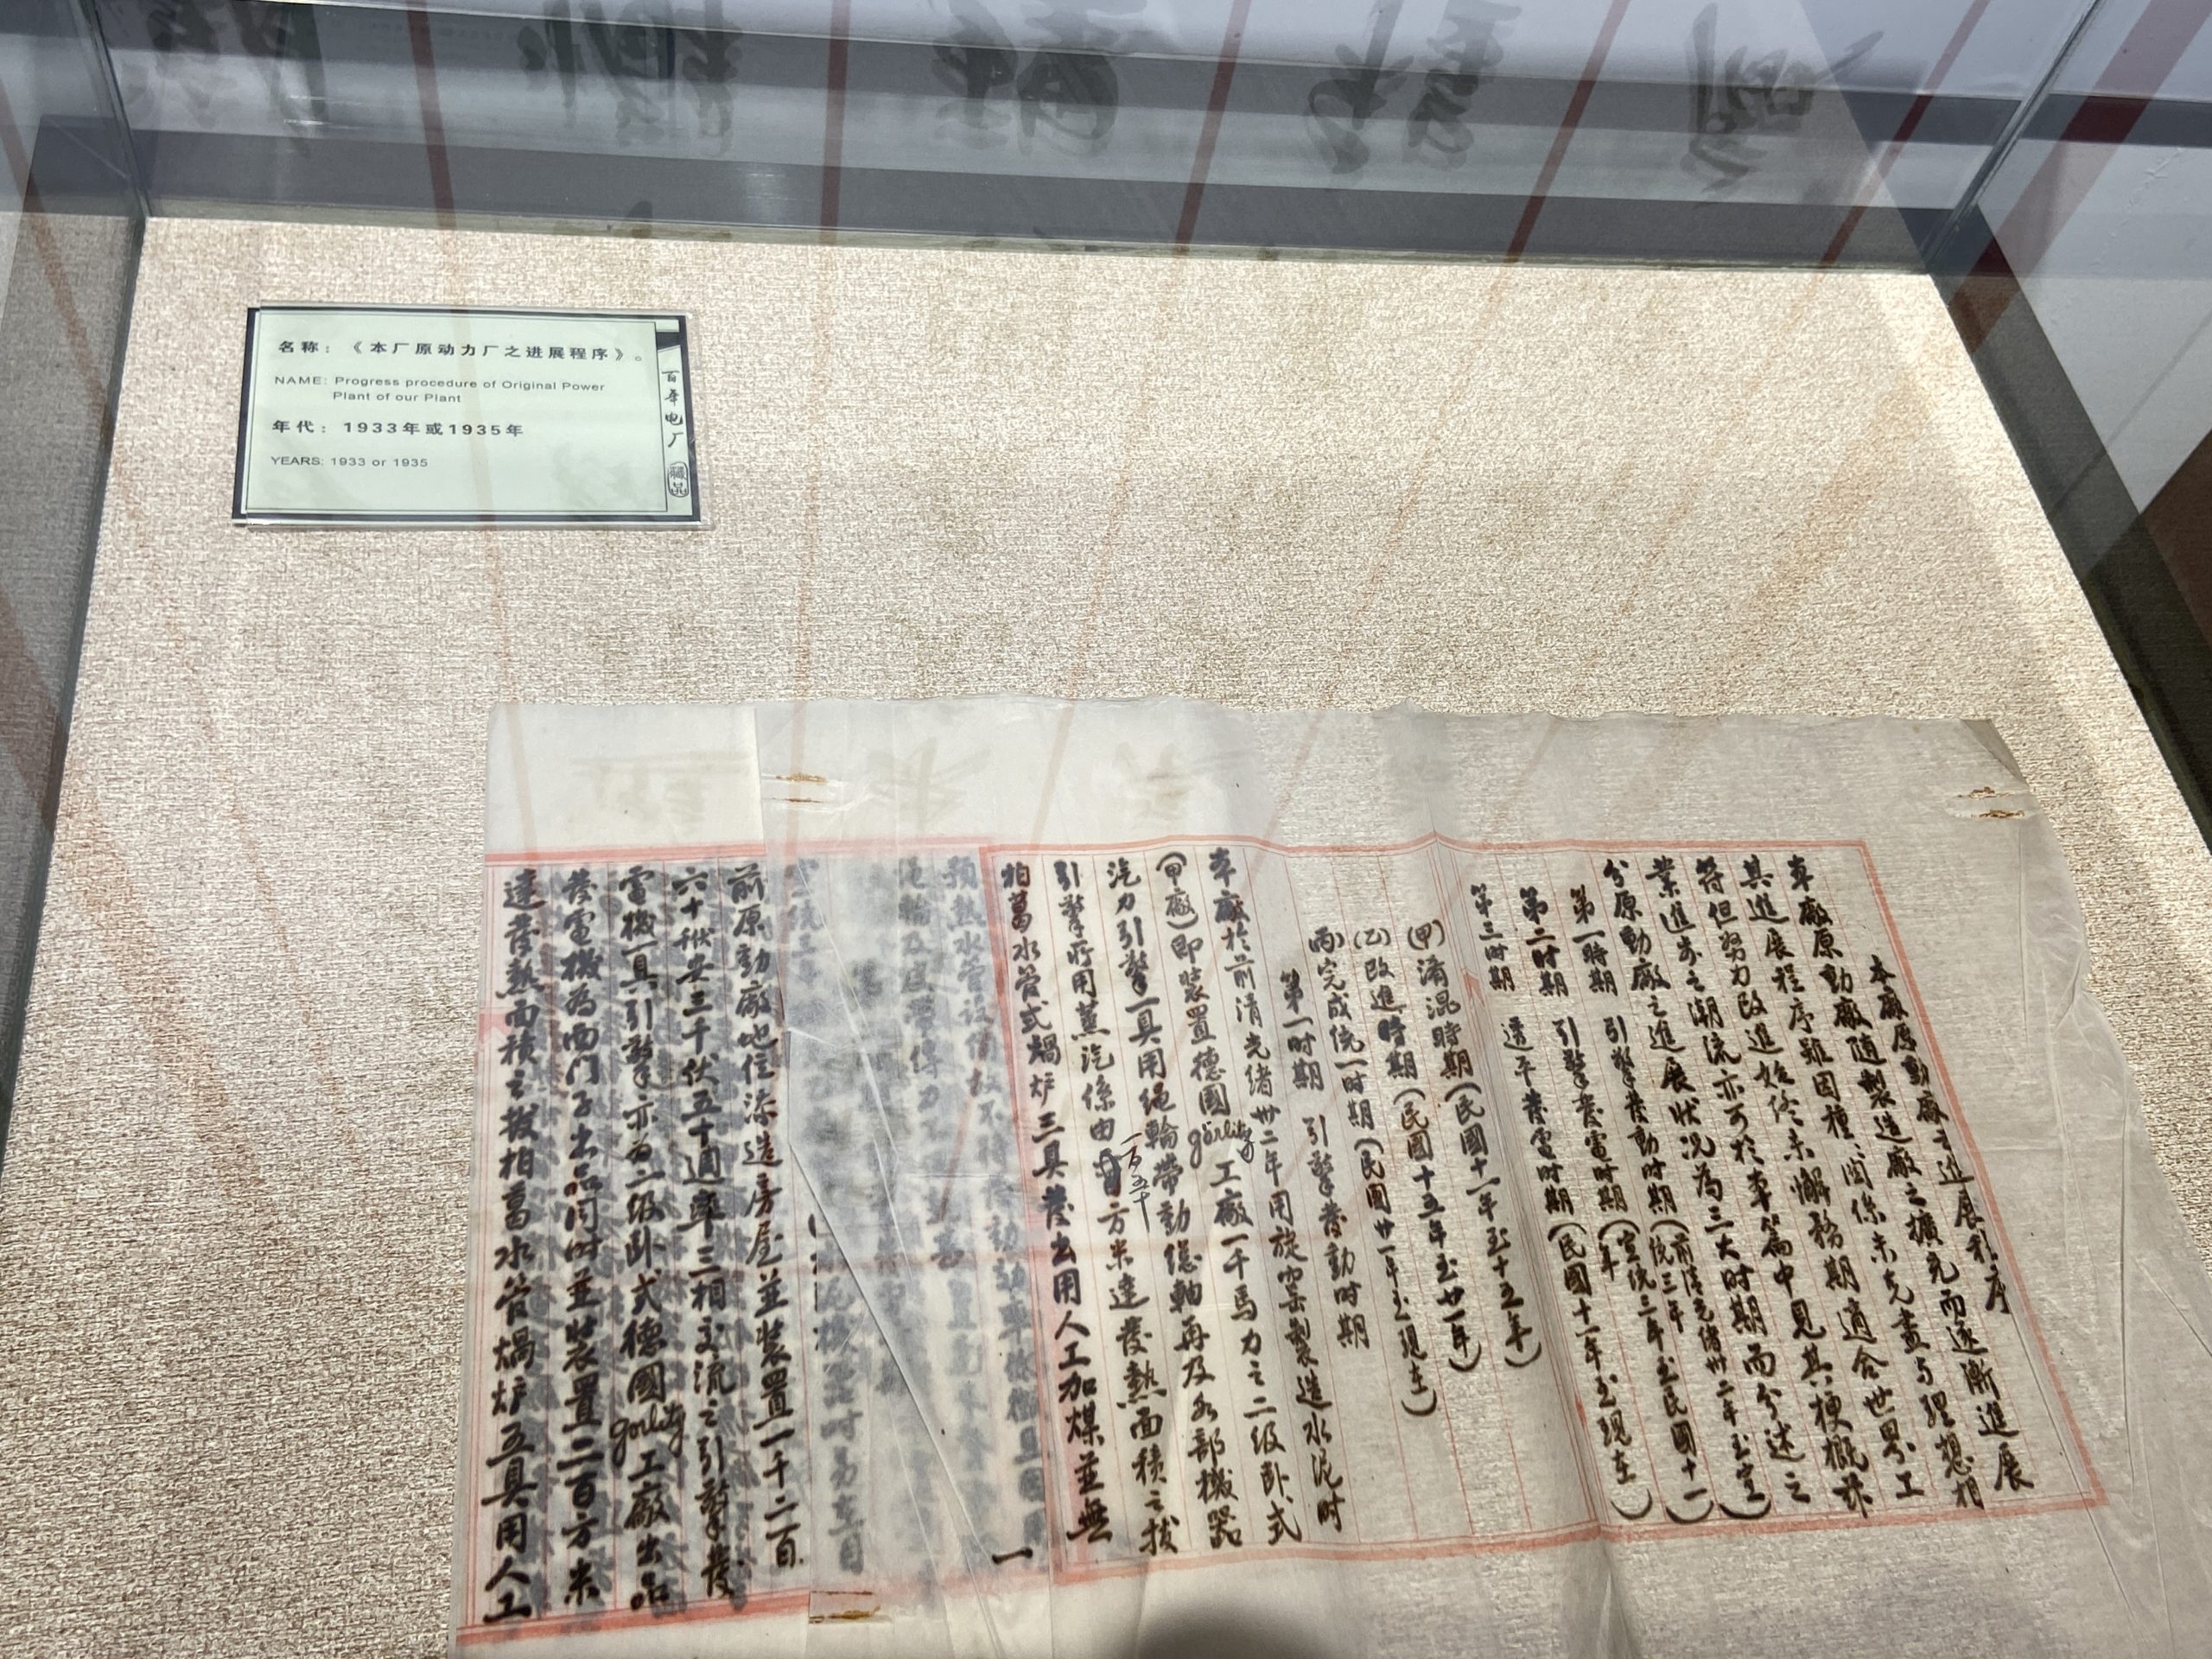 名称：《本厂原动力厂之进展程序》。
NAME: Progress procedure of Original Power
Plant of our Plant
年代：1933年或1935年
YEARS: 1933 or 1935
百年电厂
藏品
本廠原動廠之進展程序
本廠原動廠隨製造廠之擴充而逐漸進展
其進展程序雖因種種關係未克盡与理想相
符但努力改進始終未懈務期適合世界工
業進步之潮流亦可於本篇中見其梗概茲
分原動廠之進展狀況為三大时期而分述之
第一時期 引擎發動时期(前清光緒卅二年至宣統三年)
第二时期 引擎發電时期(宣統三年至民國十一年)
第三时期 透平發電时期(民國十一年至現在)
(甲)淆混時期(民國十一年至十五年)
(乙)改進時期(民國十五年至廿一年)
(丙)完成統一时期(民國廿一年至現在)
第一时期 引擎發動时期
本廠於前清光緒卅二年用旋窑製造水泥时
(甲廠)即裝置德國görlitz工廠一千馬力之二级卧式
汽力引擎一具用绳輪帶動總軸再及各部機器
引擎所用蒸汽係由一百五十方米達發熱面積之拔
柏葛水管式鍋炉三具發出用人工加煤並無
一
前原動廠地位添造房屋並裝置一千二百
六十伏安三千伏五十週率三相交流之引擎發
電機一具引擎亦为二级卧式德國görlitz工廠出品
發電機為西门子出品同时並裝置二百方米
達發熱面積之拔柏葛水管鍋炉五具用人工